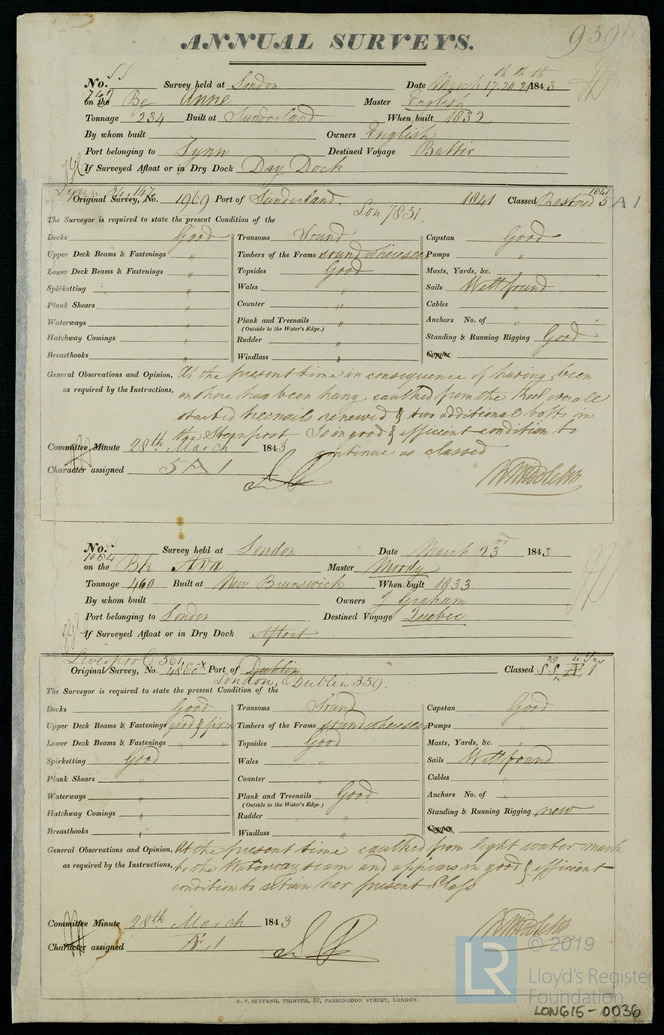 ANNUAL SURVEYS.
No. 51 Survey held at London Date March 17. 20. 21 1843
on the Bg Anne Master English
Tonnage 234 Built at Sunderland When built 1832
By whom built Owners English
Port belonging to Lynn Destined Voyage Baltic
If Surveyed Afloat or in Dry Dock Dry Dock
Original Survey, No. 1969 Port of Sunderland. 1841 Classed Restored 5 A 1
1841
Lon 7851.
The Surveyor is required to state the present Condition of the
Decks Good Transoms Sound Capstan Good
Upper Deck Beams & Fastenings " Timbers of the Frame sound where seen Pumps "
Lower Deck Beams & Fastenings " Topsides Good Masts, Yards, &c. "
Spirketting " Wales " Sails Well found
Plank Shears " Counter " Cables "
Waterways " Plank and Treenails " Anchors No. of "
(Outside to the Water's Edge.)
Hatchway Comings " Rudder " Standing & Running Rigging Good
Breasthooks " Windlass " Copper
General Observations and Opinion, At the present time in consequence of having been
as required by the Instructions, on shore has been hung, caulked from the keel over all
started treenails renewed & two additional bolts in
the Sternpost Is in good & efficient condition to
continue as classed
Committee Minute 28th March 1843
Character assigned 5 A 1
No. Survey held at London Date March 23rd 1843
on the Bk Ava Master Moody
Tonnage 460 Built at New Brunswick When built 1833
By whom built Owners J Graham
Port belonging to London Destined Voyage Quebec
If Surveyed Afloat or in Dry Dock Afloat
Liverpool 561
Original Survey, No. 4860 Port of Dublin Classed
London, & Dublin 559.
The Surveyor is required to state the present Condition of the
Decks Good Transoms Sound Capstan Good
Upper Deck Beams & Fastenings good & firm Timbers of the Frame sound where seen Pumps "
Lower Deck Beams & Fastenings " " Topsides Good Masts, Yards, &c. "
Spirketting Good Wales " Sails Well found
Plank Shears " Counter " Cables "
Waterways " Plank and Treenails Good Anchors No. of "
(Outside to the Water's Edge.)
Hatchway Comings " Rudder " Standing & Running Rigging new
Breasthooks " Windlass " Copper
General Observations and Opinion, At the present time caulked from light water mark
as required by the Instructions, to the Waterway seam and appears in good & efficient
condition to retain her present Class
Committee Minute 28th March 1843
Character assigned Æ 1
C. F. SEYFANG, PRINTER, 57, FARRINGDON STREET, LONDON.
LR © 2019
Lloyd's Register
Foundation
LON615-0036